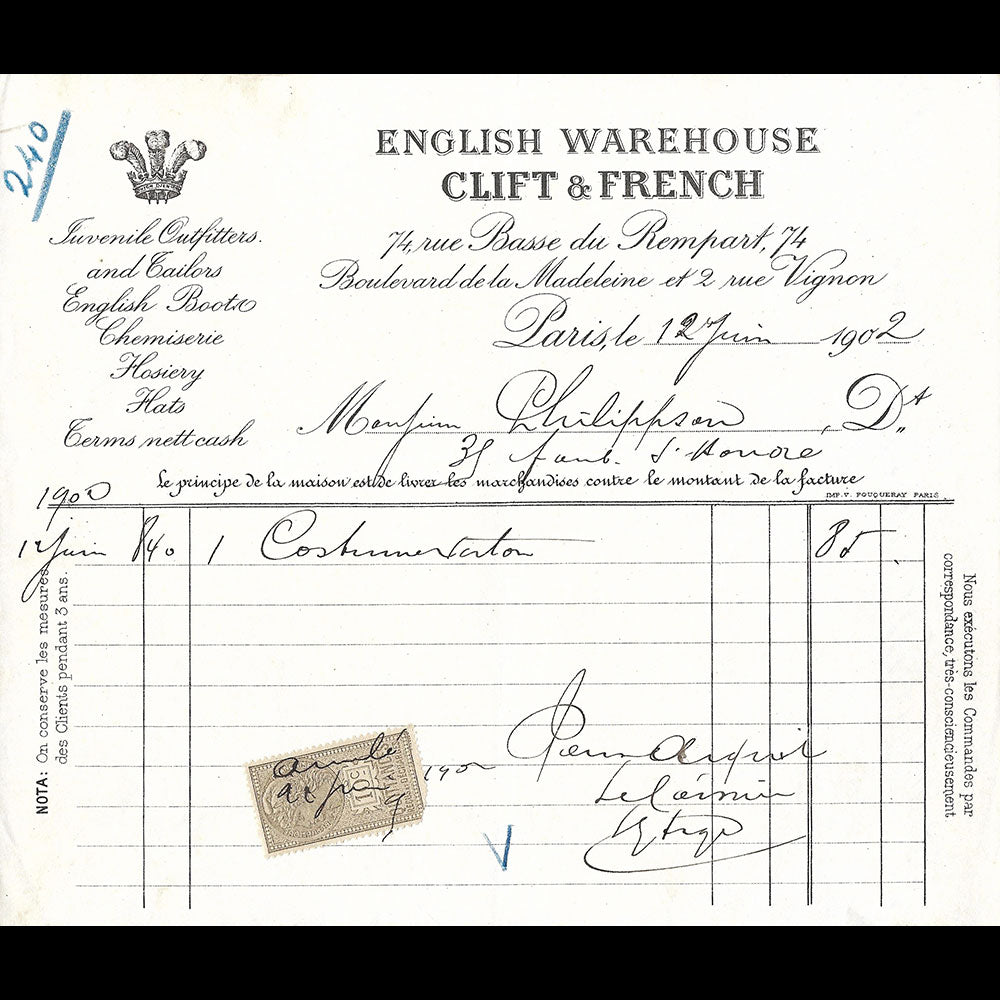 240
ENGLISH WAREHOUSE
CLIFT & FRENCH
74, rue Basse du Rempart, 74
Boulevard de la Madeleine et 2 rue Vignon
Juvenile Outfitters.
and Tailors
English Boots
Chemiserie
Hosiery
Hats
Terms, nett cash
Paris, le 12 Juin 1902
Monsieur Philippson, Dt
35 faub. St Honoré
Le principe de la maison est de livrer les marchandises contre le montant de la facture
IMP. V. FOUQUERAY PARIS.
1902
12 Juin 840 1 Costume 85
NOTA: On conserve les mesures
des Clients pendant 3 ans.
Nous exécutons les Commandes par
correspondance, très-consciencieusement
Pour Acquit
Le Caissier
10c
1902